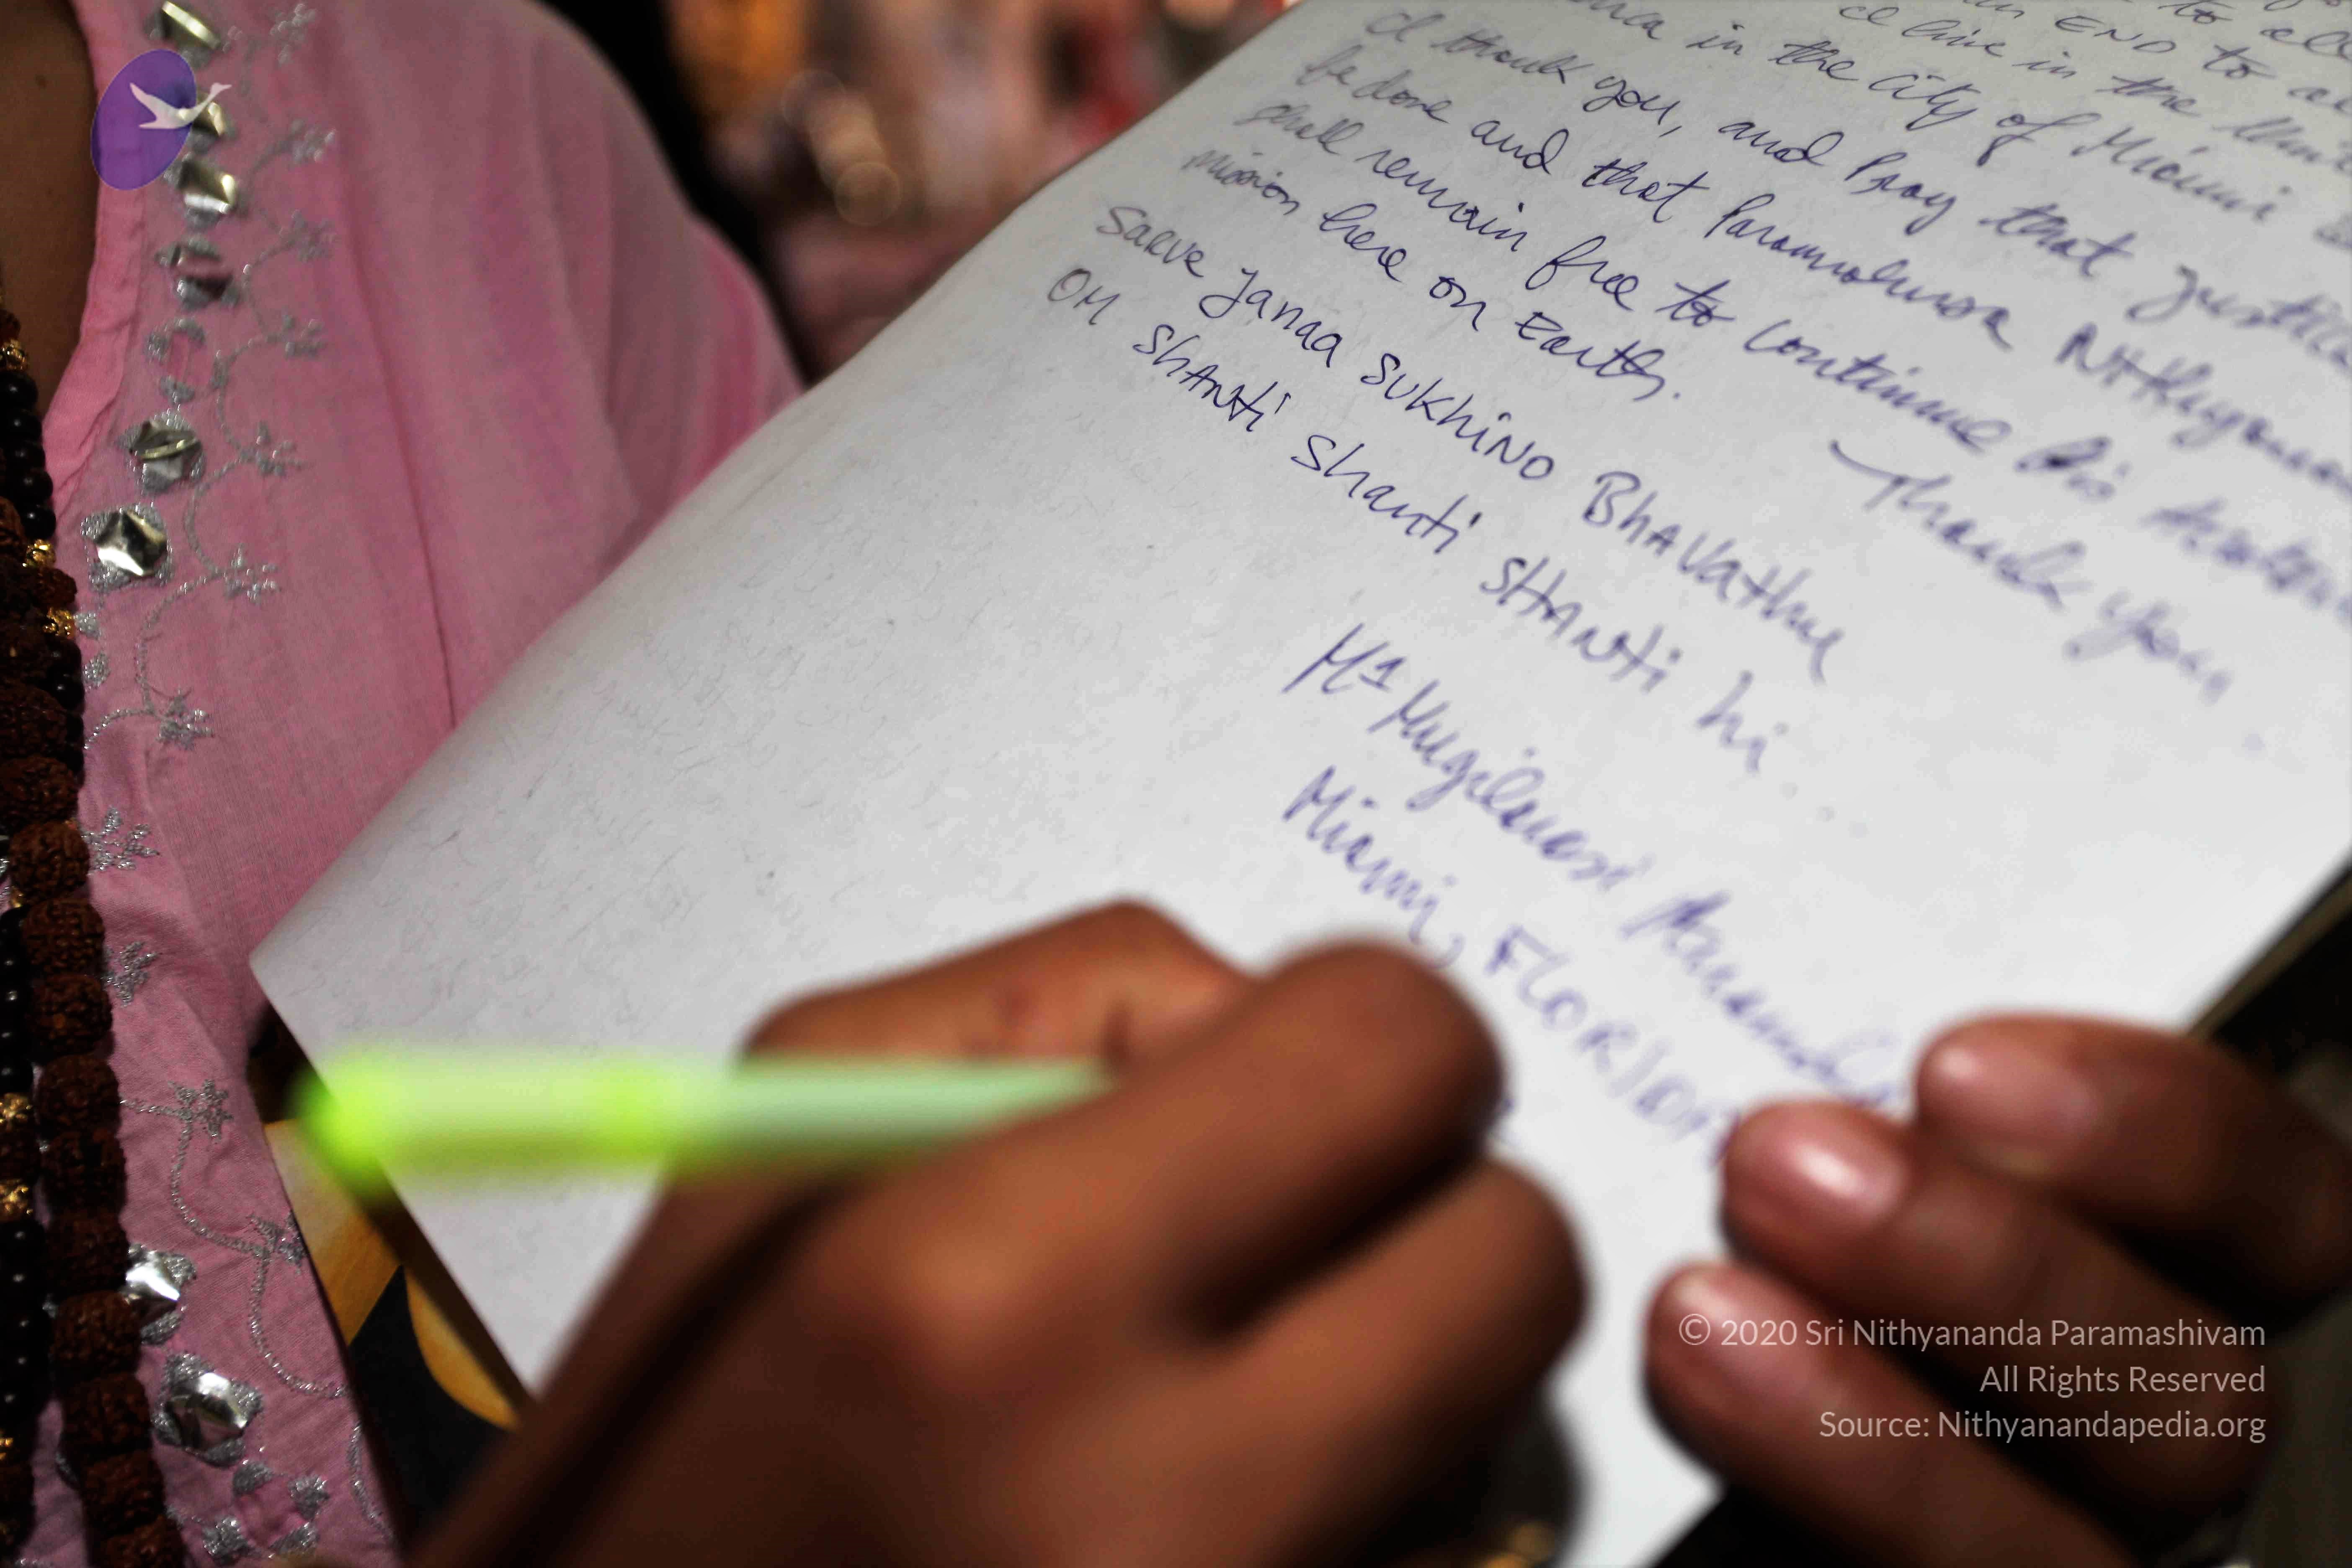 to all
END to
I live in the
in the city of Miami
I thank you, and Pray that Justice
be done and that Paramahamsa
shall remain free to continue his
mission here on Earth.
Thank you,
SARVE Janaa SUKhiNO BhAVaThu
OM ShANti Shanti SHANti hi
Ma
Miami, FLORIDA
© 2020 Sri Nithyananda Paramashivam
All Rights Reserved
Source: Nithyanandapedia.org